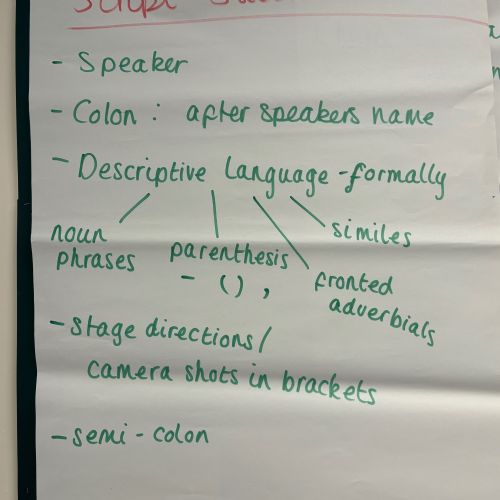 Script
- Speaker
- Colon : after speakers name
- Descriptive language - formally
noun phrases
parenthesis - ( ) ,
fronted adverbials
similes
- stage directions/
camera shots in brackets
- semi-colon